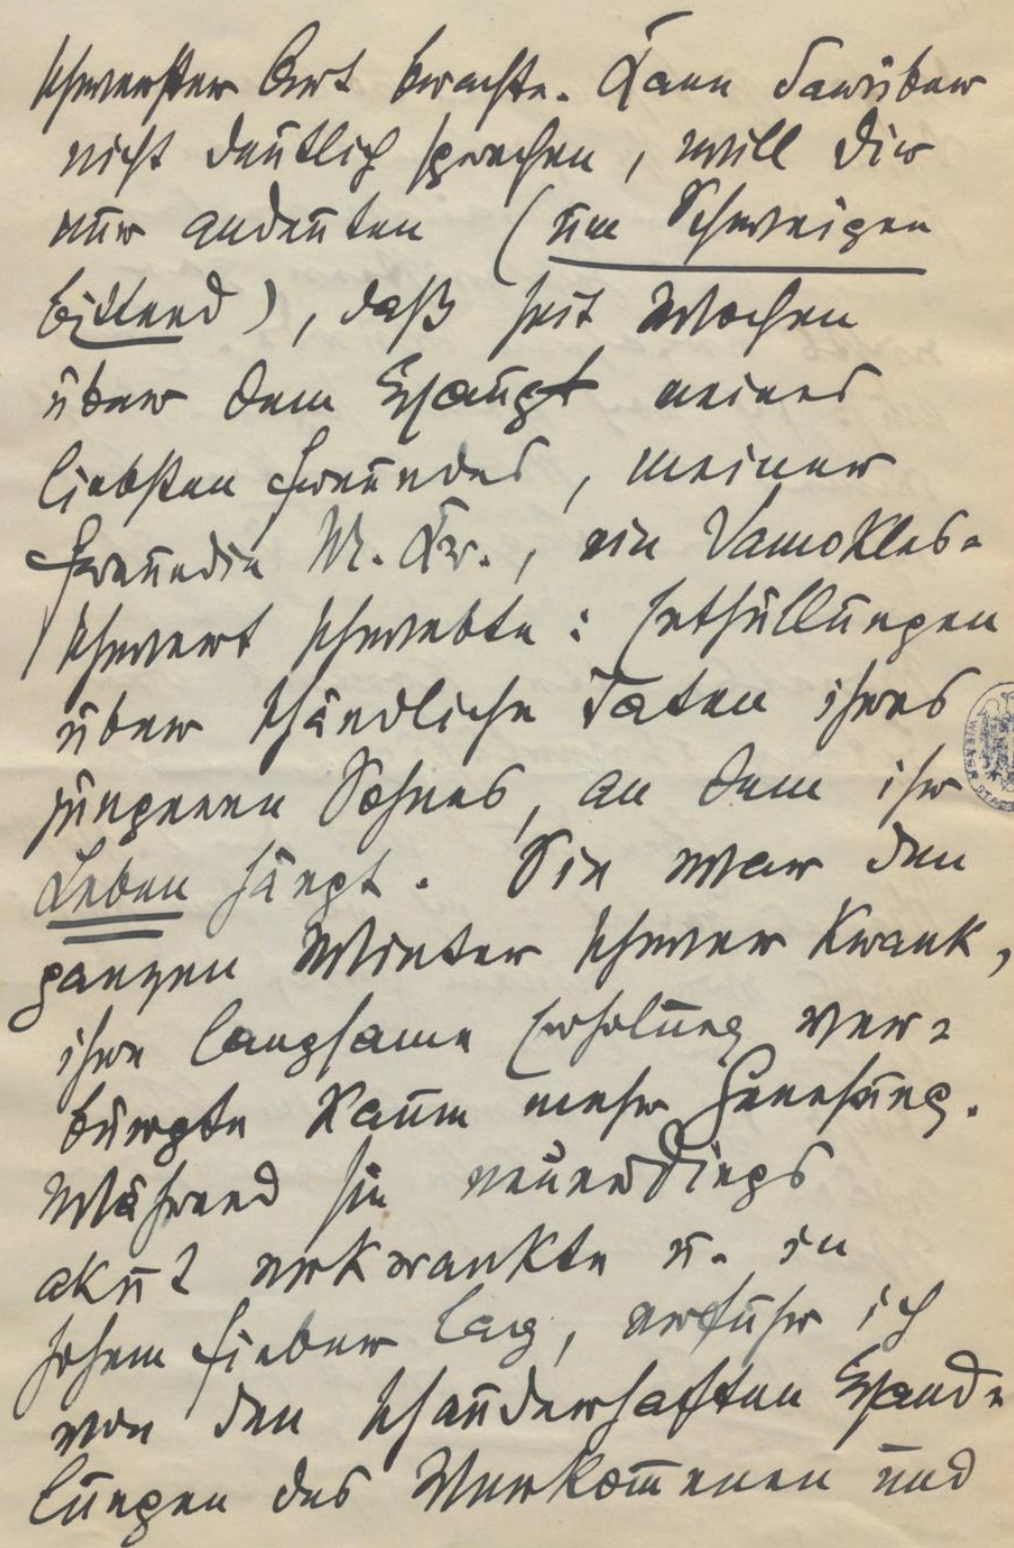 schwerster Art brachte. Kann darüber
nicht deutlich sprechen, will dir
nur andeuten (um Schweigen
bittend), daß seit Wochen
über dem Haupt meines
liebsten Freundes, meiner
Freundin M. Kr., ein Damokles-
schwert schwebte: Enthüllungen
über schändliche Taten ihres
jüngeren Sohnes, an dem ihr
Leben hängt. Sie war den
ganzen Winter schwer krank,
ihre langsame Erholung ver-
bürgte kaum mehr Genesung.
Während sie neuerdings
akut erkrankte u. in
hohem Fieber lag, erfuhr ich
von den schauderhaften Hand-
lungen des Verkom̅enen und